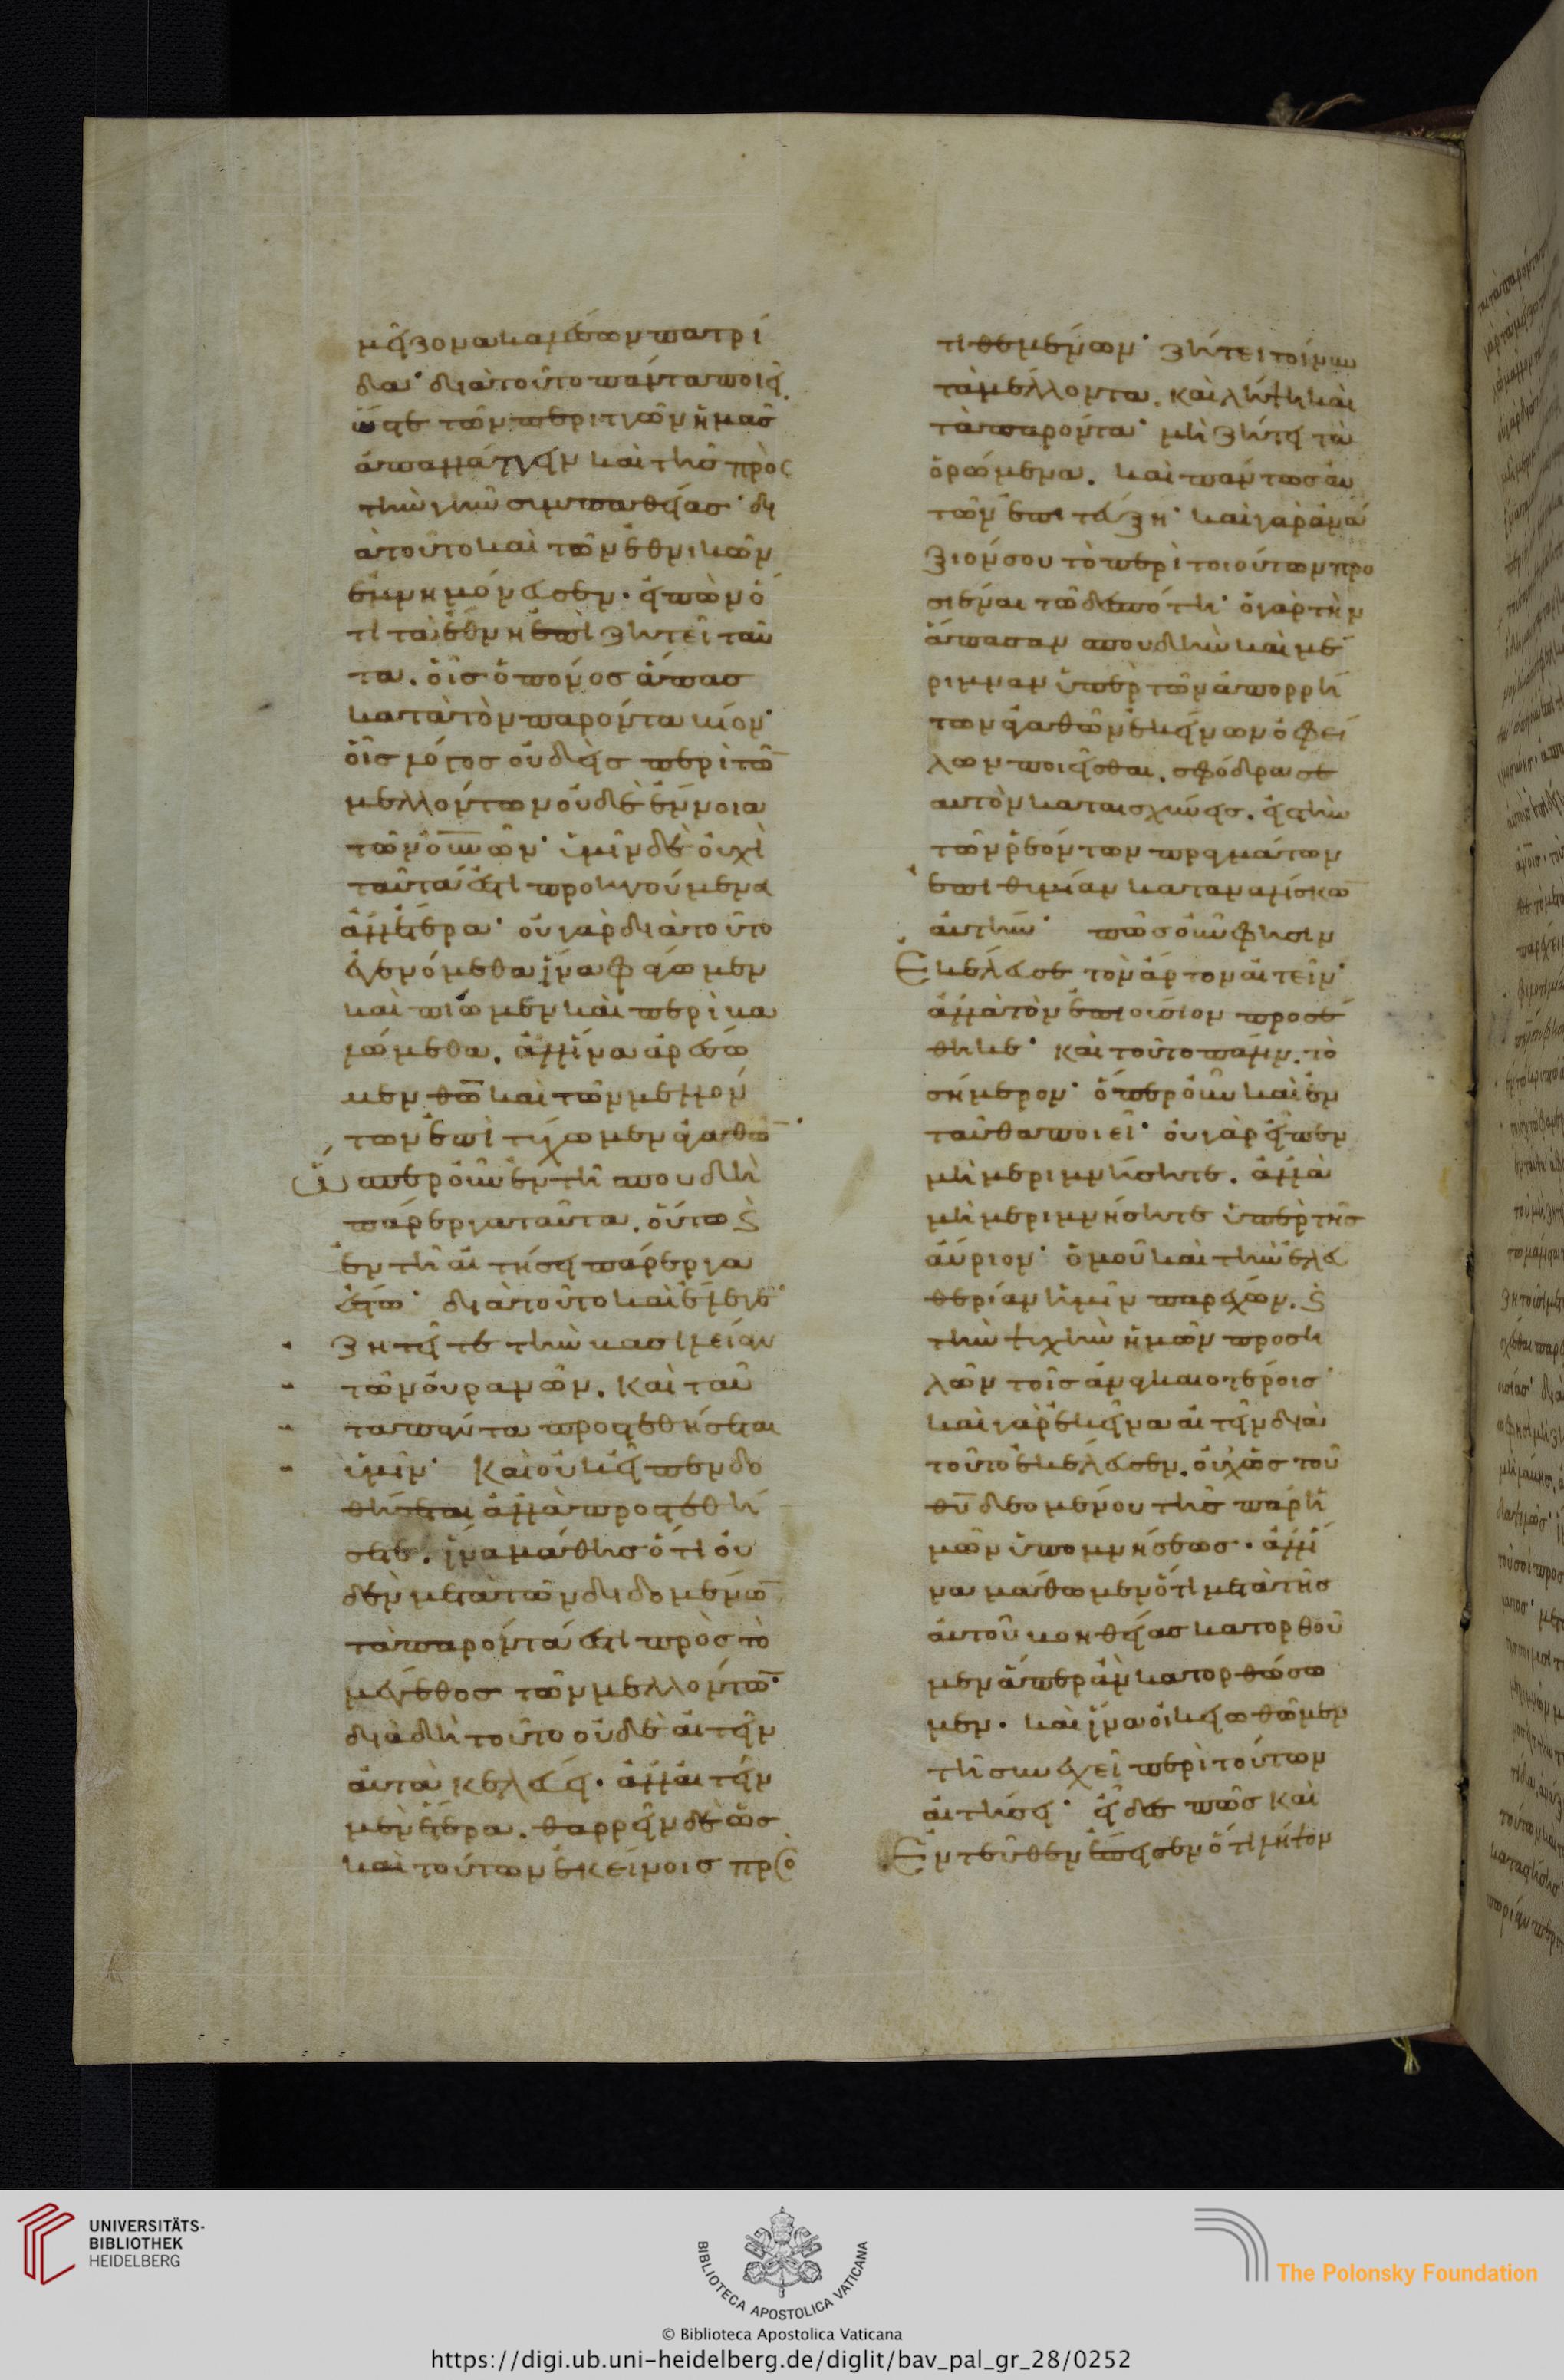 μείζονα καλέσων πατρί
δα· διὰ τοῦτο πάντα ποιεῖ.
ὥστε τῶν περιττῶν ἡμᾶς
ἀπαλλάττειν καὶ τῆς πρὸς
τὴν γῆν συμπαθείας· δι
ὰ τοῦτο καὶ τῶν ἐθνικῶν
ἐμνημόνευσεν. εἰπὼν ὅ
τι τὰ ἔθνη ἐπιζητεῖ ταῦ
τα. οἷς ὁ πόνος ἅπας
κατὰ τὸν παρόντα βίον·
οἷς λόγος οὐδεὶς περὶ τῶ̅
μελλόντων οὐδὲ ἔννοια
τῶν ο̅υ̅νῶν· ὑμῖν δὲ οὐχὶ
ταῦτά ἐστι προηγούμενα
ἀλλ' ἕτερα· οὐ γὰρ διὰ τοῦτο
ἐγενόμεθα ἵνα φάγωμεν
καὶ πίωμεν καὶ περιβα
λώμεθα. ἀλλ' ἵνα ἀρέσω
μεν θ̅ω̅ καὶ τῶν μελλόν
των ἐπιτύχωμεν ἀγαθῶ̅·
Ὥσπερ οὖν ἐν τῇ σπουδῇ
πάρεργα ταῦτα. οὕτω ϗ
ἐν τῇ αἰτήσει πάρεργα
ἔστω· διὰ τοῦτο καὶ ἔλεγε·
ζητεῖτε τὴν βασιλείαν
τῶν οὐρανῶν. καὶ ταῦ
τα πάντα προστεθήσεται
ὑμῖν· Καὶ οὐκ εἶπεν δο
θήσεται ἀλλὰ προστεθή
σεται. ἵνα μάθῃς ὅτι οὐ
δὲν μετὰ τῶν διδομένω̅
τὰ παρόντά ἐστι πρὸς τὸ
μέγεθος τῶν μελλόντω̅·
διὰ δὴ τοῦτο οὐδὲ αἰτεῖν
αὐτὰ κελεύει. ἀλλ' αἰτεῖν
μὲν ἕτερα. θαρρεῖν δὲ ὡς
καὶ τούτων ἐκείνοις προσ
τιθεμένων· ζήτει τοίνυν
τὰ μέλλοντα. καὶ λήψῃ καὶ
τὰ παρόντα· μὴ ζήτει τὰ
ὁρώμενα. καὶ πάντως αὐ
τῶν ἐπιτεύξῃ· καὶ γὰρ ἀνά
ξιόν σου τὸ περὶ τοιούτων προ
σιέναι τῶ δεσπότῃ· ὁ γὰρ τὴν
ἅπασαν σπουδὴν καὶ μέ
ριμναν ὑπὲρ τῶν ἀπορρή
των ἀγαθῶν ἐκείνων ὀφεί
λων ποιεῖσθαι. σφόδρα σε
αυτὸν καταισχύνεις. εἰς τὴν
τῶν ῥεόντων πραγμάτων
ἐπιθυμίαν καταναλίσκω̅
αὐτήν· πῶς οὖν φησιν
Ἐκέλευσε τὸν ἄρτον αἰτεῖν·
ἀλλὰ τὸν ἐπιούσιον προσέ
θηκε· καὶ τοῦτο πάλιν. τὸ
σήμερον· ὅπερ οὖν καὶ ἐν
ταῦθα ποιεῖ· οὐ γὰρ εἶπεν
μὴ μεριμνήσητε. ἀλλὰ
μὴ μεριμνήσητε ὑπὲρ τῆς
αὔριον· ὁμοῦ καὶ τὴν ἐλευ
θερίαν ἡμῖν παρέχων. ϗ
τὴν ψυχὴν ἡμῶν προση
λῶν τοῖς ἀναγκαιοτέροις·
καὶ γὰρ ἐκεῖνα αἰτεῖν διὰ
τοῦτο ἐκέλευσεν. οὐχ ὡς τοῦ
θ̅υ̅ δεομένου τῆς παρ' ἡ
μῶν ὑπομνήσεως. ἀλλ' ἵ
να μάθωμεν ὅτι μετὰ τῆς
αὐτοῦ βοηθείας κατορθοῦ
μεν ἅπερ ἂν κατορθώσω
μεν. καὶ ἵνα οἰκειωθῶμεν
τῇ συνεχεῖ περὶ τούτων
αἰτήσει· εἶδες πῶς καὶ
Ἐντεῦθεν ἔπεισεν ὅτι λήψον
UNIVERSITÄTS-
BIBLIOTHEK
HEIDELBERG
BIBLIOTECA APOSTOLICA VATICANA
The Polonsky Foundation
© Biblioteca Apostolica Vaticana
https://digi.ub.uni-heidelberg.de/diglit/bav_pal_gr_28/0252